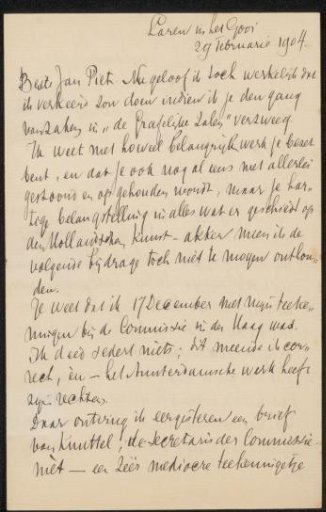 Laren in het Gooi
29 Februarie 1904.
Beste Jan Piet Nu geloof ik toch werkelijk dat
ik verkeerd zou doen indien ik je den gang
van zaken in „de Grafelijke Zalen" verzweeg.
Ik weet met hoeveel belangrijk werk je bezet
bent, en dat je ook nog al eens met allerlei
gestoord en opgehouden wordt, maar je har-
tige belangstelling in alles wat er geschiedt op
den Hollandschen Kunst-akker meen ik de
volgende bijdrage toch niet te mogen onthou-
den.
Je weet dat ik 17 December met mijn teeke-
ningen bij de Commissie in den Haag was.
Ik deed sedert niets; dit meende ik cor-
rect, en — het Amsterdamsche werk heeft
zijn rechten.
Daar ontving ik eergisteren een brief
van Knuttel; de Secretaris der Commissie
met — een zéér mediocre teekeningetje